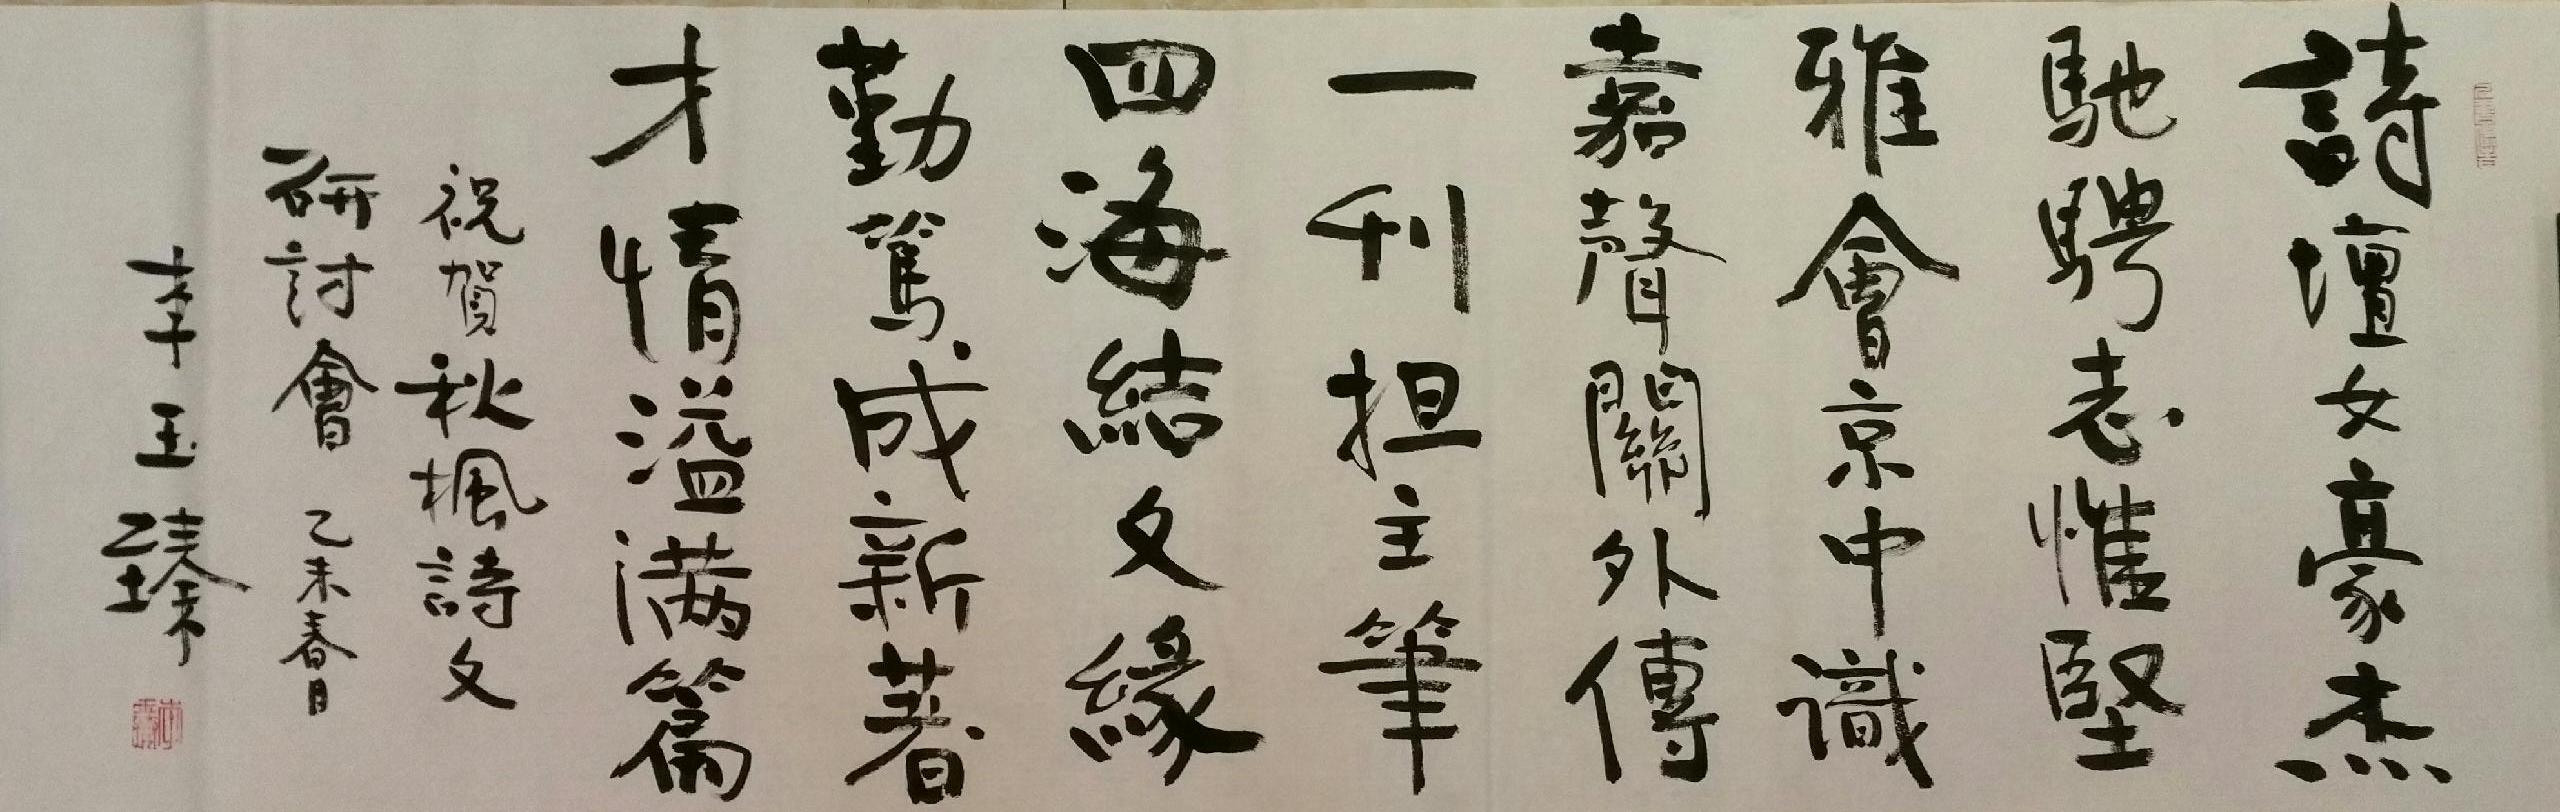 詩壇女豪杰
馳騁志惟堅
雅會京中識
嘉聲關外傳
一刊担主筆
四海結文緣
勤篤成新著
才情溢满篇
祝賀秋楓詩文
研討會 乙未春日
李玉臻